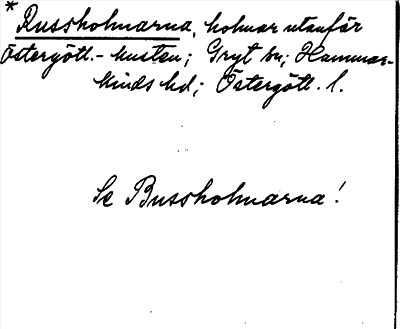 * Russholmarna, holmar utanför
Östergötl.-kusten; Gryt sn; Hammar-
kinds hd; Östergötl. l.
Se Bussholmarna!